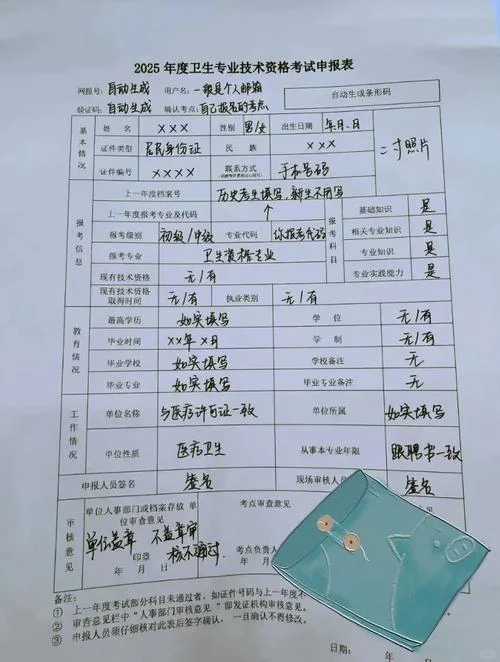 2025 年度卫生专业技术资格考试申报表
网报号: 自动生成 用户名: 一般是个人邮箱
验证码: 自动生成 确认考点: 自己报名的考点
自动生成条形码
基本情况
姓名 XXX 性别 男/女 出生日期 年.月.日
二寸照片
证件类型 居民身份证 民族 XXX
证件编号 XXXX 联系方式 手机号码
报考信息
上一年度档案号 历史考生填写,新生不用写
上一年度报考专业及代码 ↑
报考级别 初级/中级 专业代码 你报考代码
报考专业 卫生资格专业
现有技术资格 无/有
现有技术资格取得时间 无/有 执业类别 无/有
报考科目
基础知识 是
相关专业知识 是
专业知识 是
专业实践能力 是
教育情况
最高学历 如实填写 学位 无/有
毕业时间 XX年X月 学制 无/有
毕业学校 如实填写 学校备注 无
毕业专业 如实填写 毕业专业备注 无
工作情况
单位名称 与医疗许可证一致 单位所属 如实填写
单位性质 医疗卫生 从事本专业年限 跟聘书一致
申报人员签名 签名 现场审核人员 签名
审核意见
单位人事部门或档案存放单位审查意见
单位盖章 不盖章审核不通过
印章
年 月 日
考点审查意见
考点负责人
年 月
备注:
① 上一年度考试部分科目未通过者,如证件号码与上一年度不
② 审查意见栏中“人事部门审核意见”即发证机构审核意见。
③ 申报人员须仔细核对此表后签字确认,一旦确认不得修改。
日期: 年